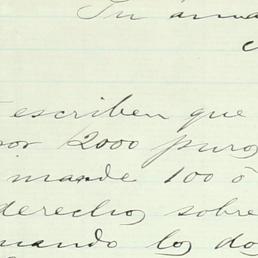 Tu
escriben que
por 2000 puros
mande 100 ó
derechos sobre
mando los dos